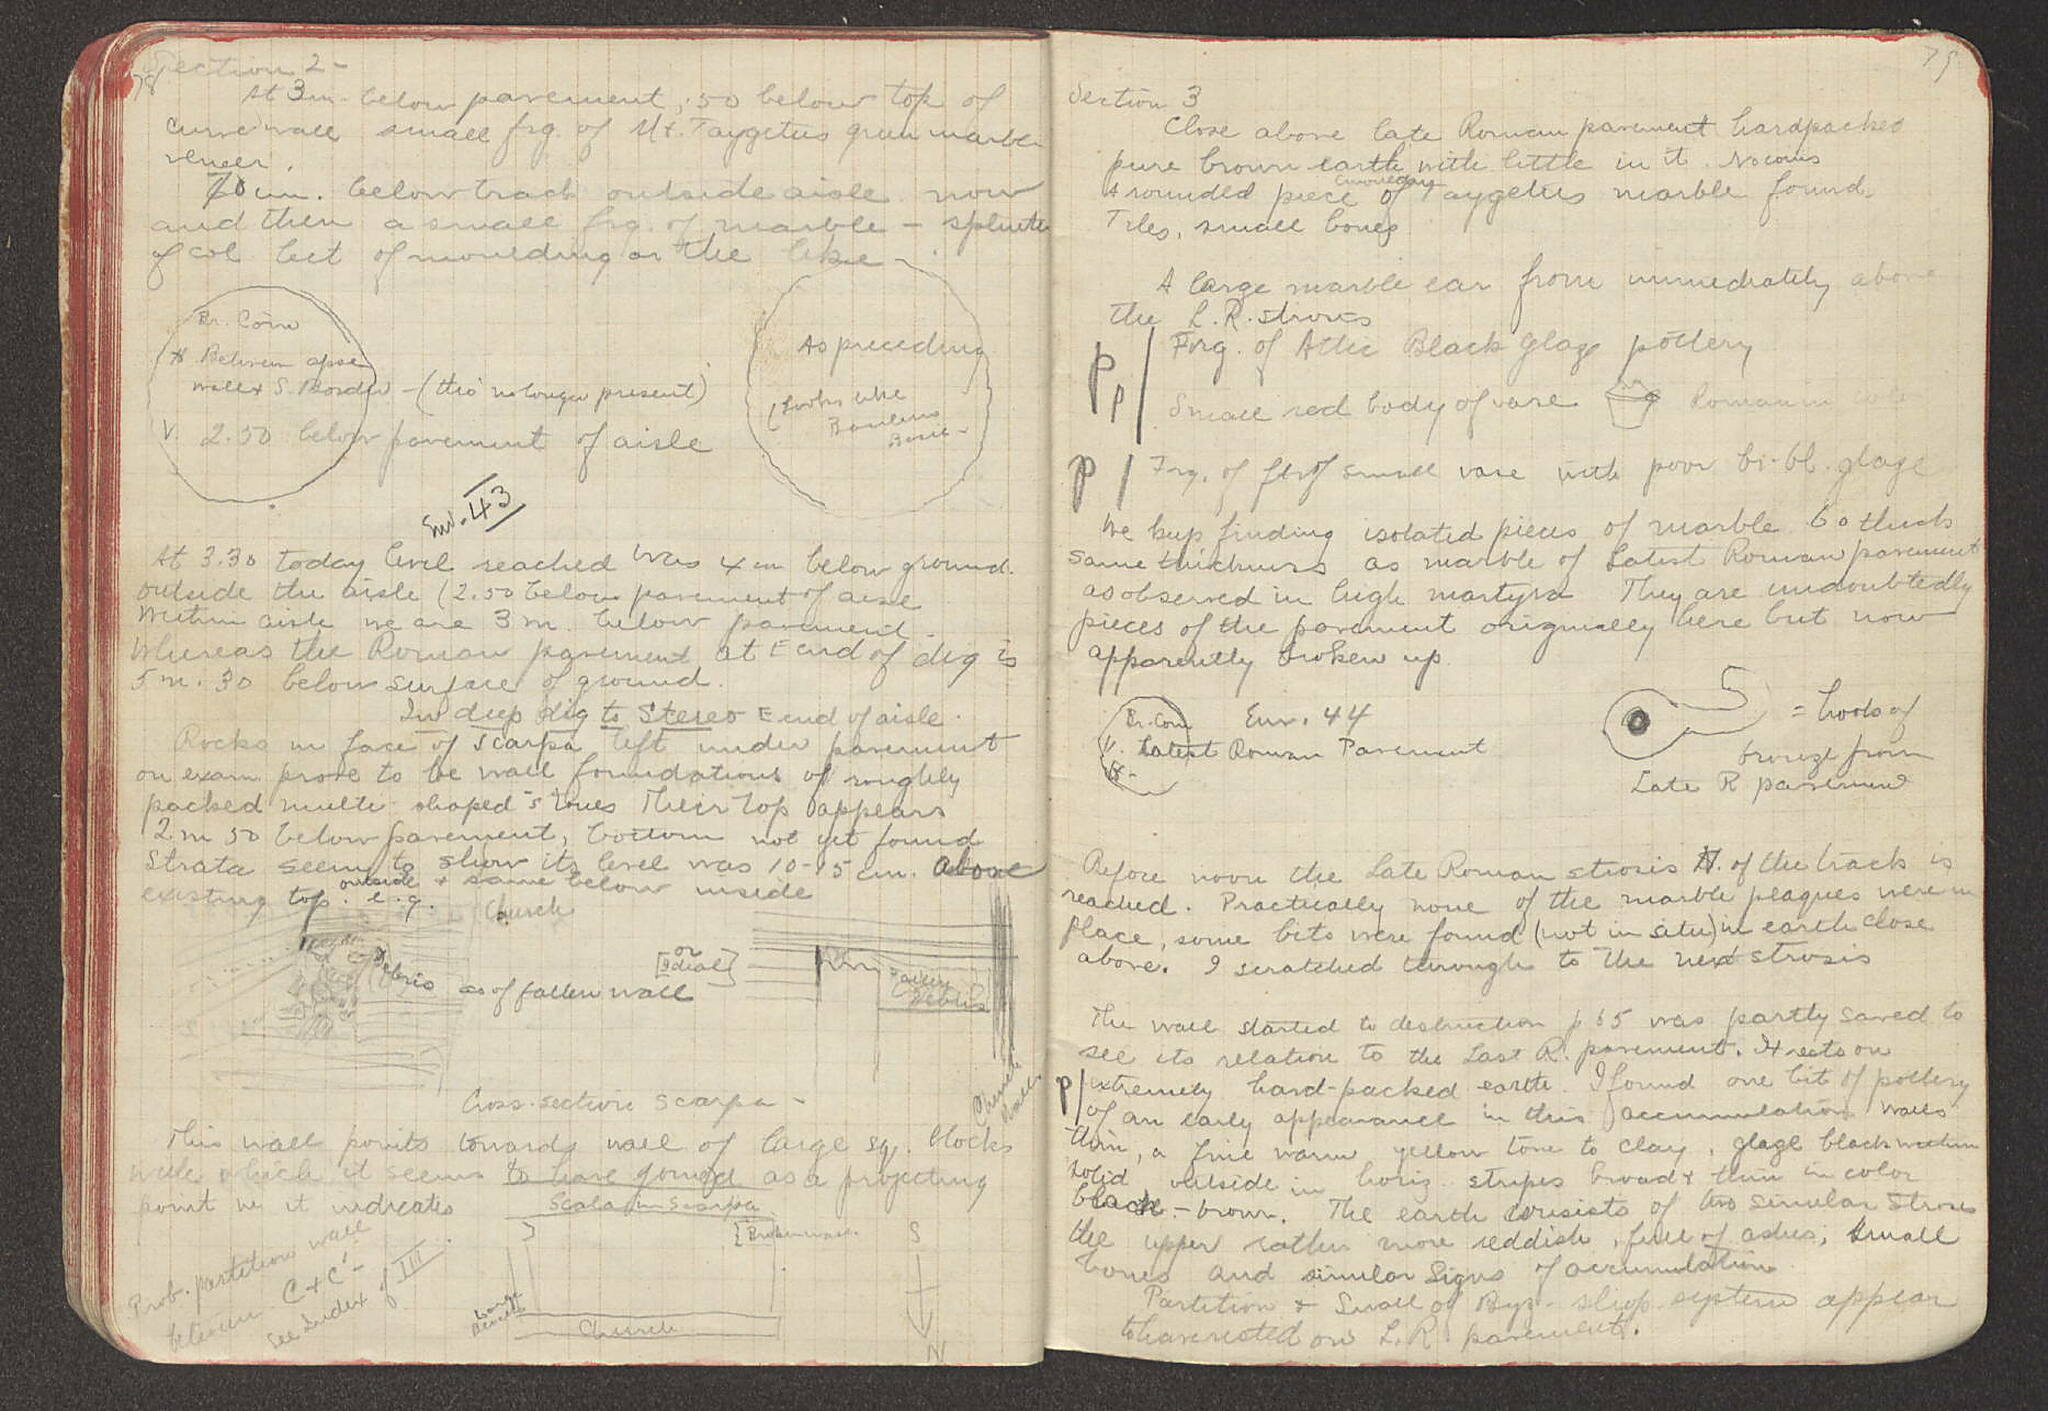 78
Section 2 -
At 3 m. below pavement, .50 below top of
curve wall small frg. of Mt. Taygetus green marble
veneer.
70 cm. below track outside aisle now
and then a small frg. of marble - splinter
of col bit of moulding or the like -
Br. Coin
Between apse
wall & S. Border - (this no longer present)
V. 2.50 below pavement of aisle
As preceding
(Looks like
Basileus
Basil-
Env. 43
At 3.30 today level reached was 4 m below ground
outside the aisle (2.50 below pavement of aisle
Within aisle we are 3 m. below pavement.
Whereas the Roman pavement at E end of dig is
5 m. 30 below surface of ground.
In deep dig to Stereo E end of aisle.
Rocks in face of scarpa left under pavement
on exam prove to be wall foundations of roughly
packed multi-shaped stones Their top appears
2 m 50 below pavement, bottom not yet found
Strata seem to show its level was 10-15 cm. above
existing top. outside & same below inside
e.g.
Church
Debris
as of fallen wall
[or Ideal]
Debris
Church Wall
Cross-section scarpa -
This wall points towards wall of large sq. blocks
with which it seems to have joined as a projecting
point in it indicates
Scala in Scarpa
[Broken wall.
S
N
Large
Church
Prob. partition wall
between C & C' -
See Index of III
79
Section 3
Close above late Roman pavement hardpacked
pure brown earth with little in it. No coins
A rounded piece of Taygetus marble found.
Tiles, small bones
A large marble ear from immediately above
the L.R. strosis
P/ Frg. of Attic Black Glaze pottery
P/ Small red body of vase Roman in
P/ Frg. of small vase with poor br-bl. glaze
We keep finding isolated pieces of marble
same thickness as marble of Latest Roman pavement
as observed in high martyra They are undoubtedly
pieces of the pavement originally here but now
apparently broken up
Br. Coin Env. 44
V. Latest Roman Pavement
= hook of
bronze from
Late R pavement
Before noon the Late Roman strosis N. of the track is
reached. Practically none of the marble plaques were in
place, some bits were found (not in situ) in earth close
above. I scratched through to the next strosis
The wall started to destruction p 65 was partly saved to
see its relation to the Last R. pavement. It rests on
P/ extremely hard-packed earth. I found one bit of pottery
of an early appearance in this accumulation walls
thin, a fine warm yellow tone to clay, glaze black within
solid outside in horiz. stripes broad & thin in color
black-brown. The earth consists of two similar stroses
the upper rather more reddish, full of ashes, small
bones and similar signs of accumulation
Partition & S wall of Byz-shop system appear
to have rested on L.R. pavement.